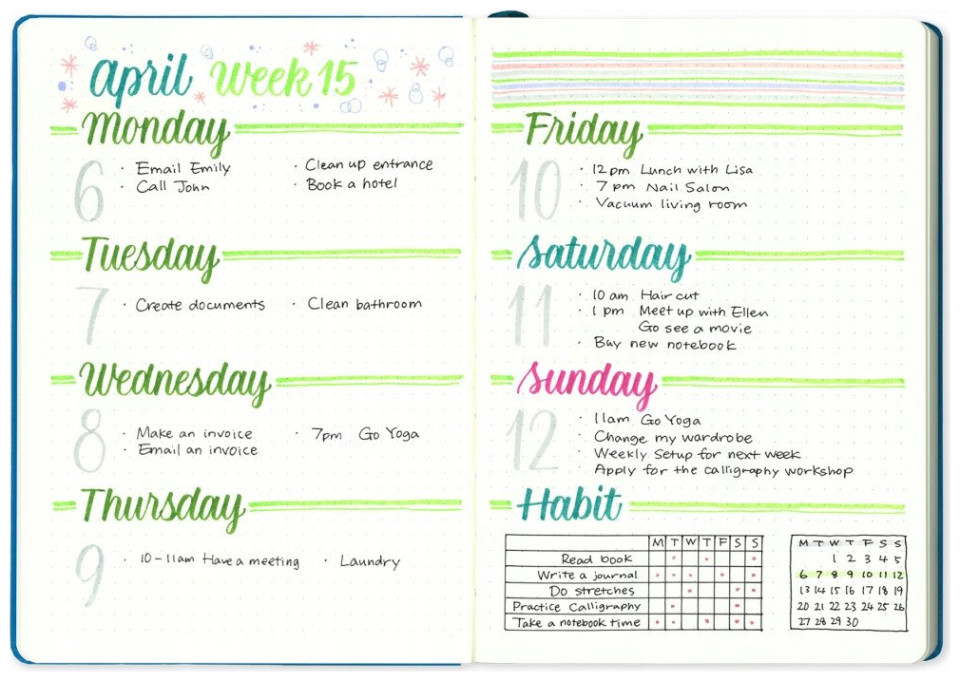 april Week 15
Monday
6
· Email Emily
· Call John
· Clean up entrance
· Book a hotel
Tuesday
7
· Create documents
· Clean bathroom
Wednesday
8
· Make an invoice
· Email an invoice
· 7pm Go Yoga
Thursday
9
· 10-11am Have a meeting
· Laundry
Friday
10
· 12pm Lunch with Lisa
· 7pm Nail Salon
· Vacuum living room
Saturday
11
· 10am Hair cut
· 1pm Meet up with Ellen
Go see a movie
· Buy new notebook
Sunday
12
· 11am Go Yoga
· Change my wardrobe
· Weekly Setup for next week
· Apply for the calligraphy workshop
Habit
M T W T F S S
Read book
Write a journal
Do stretches
Practice Calligraphy
Take a notebook time
M T W T F S S
1 2 3 4 5
6 7 8 9 10 11 12
13 14 15 16 17 18 19
20 21 22 23 24 25 26
27 28 29 30